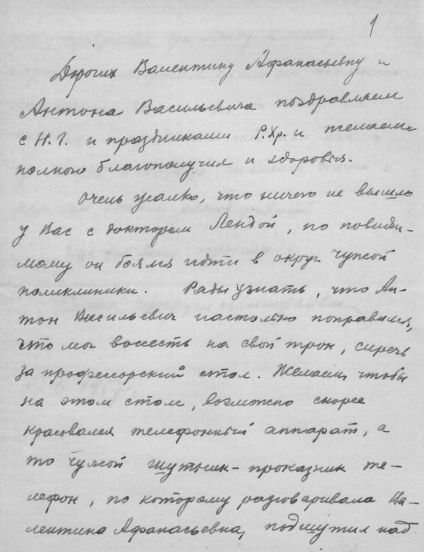 1
Дорогих Валентину Афанасьевну и
Антона Васильевича поздравляем
с Н.Г. и праздниками Р.Хр. и желаем
полного благополучия и здоровья.
Очень жалко, что ничего не вышло
у Вас с доктором Лендой, по повиди-
мому он боялся идти в округ чужой
поликлиники. Рады узнать, что Ан-
тон Васильевич настолько поправился,
что мог воссесть на свой трон, сиречь
за профессорский стол. Желаем чтобы
на этом столе, возможно скорее
красовался телефонный аппарат, а
то чужой шутник-проказник те-
лефон, по которому разговаривала Ва-
лентина Афанасьевна, подшутил над